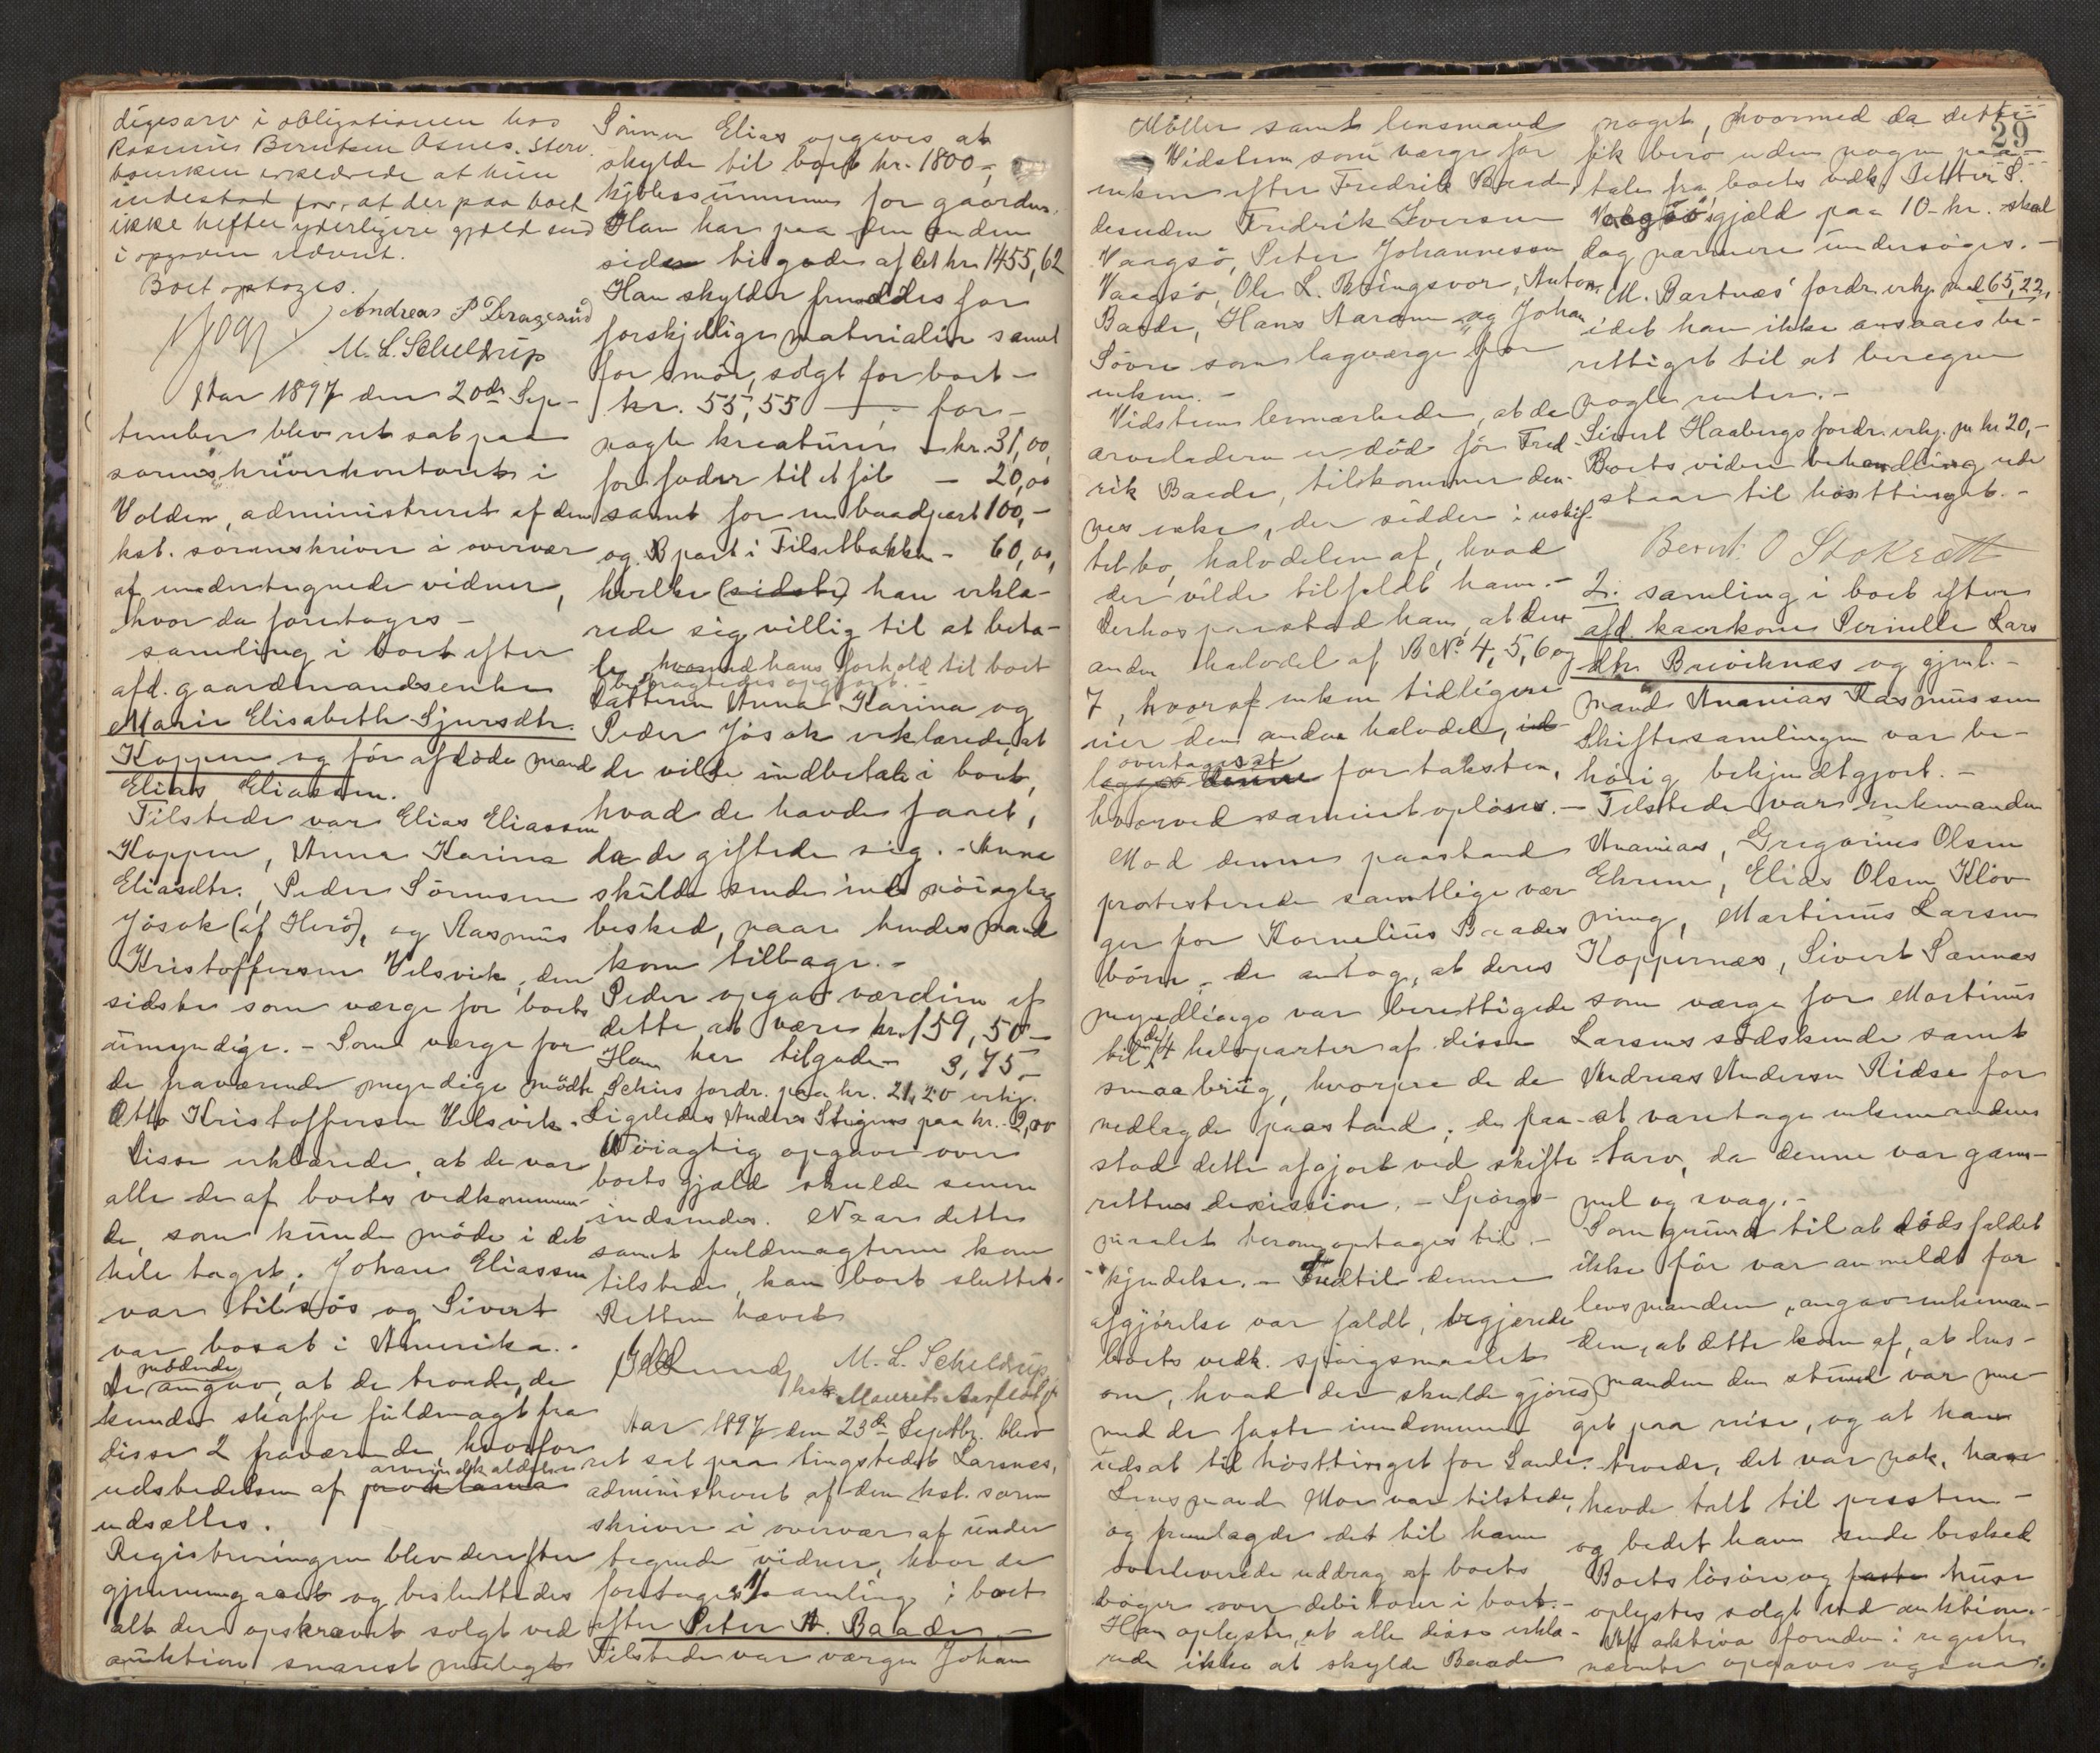 digesarv i obligationen hos
Rasmus Berntsen Osnes. Sterv-
boenken erklærede at hun
indestod for, at der paa boet
ikke hefter yderligere gjæld end
i opgaven nævnt.
Boet optoges.
Andreas P Dragesund
M. L. Scheldrup
Aar 1897 den 20de Sep-
tember blev ret sat paa
sorenskriverkontoret i
Volden, administreret af den
kst. sorenskriver i overvær
af undertegnede vidner,
hvor da foretoges
samling i boet efter
afd. gaardmandsenke
Marie Elisabeth Sjursdtr.
Koppen og før afdøde mand
Elias Eliassen.
Tilstede var Elias Eliassen
Koppen, Anna Karina
Eliasdtr., Peder Sørensen
Jøsok (af Herø), og Rasmus
Kristoffersen Velsvik, den
sidste som værge for boets
umyndige. - Som værge for
de fraværende myndige mødte
Otto Kristoffersen Velsvik.
Disse erklærede, at de var
alle de af boets vedkommen-
de, som kunde møde i det
hele taget. Johan Eliassen
var tilsjøs og Sivert
var bosat i Amerika.
De mødende angav, at de troede, de
kunde skaffe fuldmagt fra
disse 2 fraværende, hvorfor
udstedelsen af proklama arveindkaldelse
udsættes.
Registreringen blev derefter
gjennemgaaet og besluttedes
alt der opskrevet solgt ved
auktion snarest muligt
Sønnen Elias opgaves at
skylde til boet kr. 1800,-
kjøbesummen for gaarden.
Han har paa den anden
siden tilgode af det kr. 1455,62
Han skylder fremdeles for
forskjellige materialier samt
for smør, solgt for boet -
kr. 55,55 - for -
nogle kreaturer - kr. 31,00,
for foder til et føl - 20,00
samt for en baadpart 100,-
og B part i Tilsetbakke - 60,00,
hvilke (sidste) han erklæ-
rede sig villig til at beta-
le hvormed hans forhold til boet
betragtedes opgjort. -
Datteren Anna Karina og
Peder Jøsok erklærede, at
de vilde indbetale i boet,
hvad de havde faaet,
da de giftede sig. - Anne
skulde sende ind nøiagtig
besked, naar hendes mand
kom tilbage. -
Peder opgav værdien af
dette at være kr. 159,50 -
Han har tilgode - 3,75,-
Schius fordr. paa kr. 21,20 erkj.
Ligeledes Anders Stigens paa kr. 2,00
Nøiagtig opgave over
boets gjæld skulde senere
indsendes. Naar dette
samt fuldmagterne kom
tilstede, kan boet sluttet.
Retten hævet
M. L. Scheldrup
kst. Mauritz Aarflot
Aar 1897 den 23de Septbr. blev
ret sat paa tingstedet Larsnes,
administreret af den kst. soren
skriver i overvær af under
tegnede vidner, hvor da
foretoges 1/ samling i boet
efter Peter A. Baade. -
Tilstede var værgen Johan
Møller samt lensmand
Vidstem som værge for
enken efter Fredrik Baade,
desuden Fredrik Iversen
Vaagsø, Peter Johannessen
Vaagsø, Ole L. Bringsvor, Anton
Baade, Hans Aaram og Johan
Søvre som lagværge for
enken. -
Vidstem bemærkede, at da
arveladeren er død før Fred
rik Baade, tilkommer den-
nes enke, der sidder i uskif-
tet bo, halvdelen af, hvad
der vilde tilfaldt ham. -
Derhos paastod han, at den
anden halvdel af B No 4, 5, 6 og
7, hvoraf enken tidligere
eier den anden halvdel, ud
lægges denne overtages at for taksten,
hvorved sameiet opløses. -
Mod denne paastand
protesterede samtlige vær
ger for Kornelius Baades
børn, - de antog, at deres
myndlinge var berettigede
til de 4 halvparter af disse
smaabrug, hvorpaa de de
nedlagde paastand; de paa-
stod dette afgjort ved skifte-
rettens decission. - Spørgs-
maalet herom optages til -
kjendelse. - Indtil denne
afgjørelse var faldt, begjærede
boets vedk. spørgsmaalet
om, hvad der skulde gjøres
med de faste eiendomme
udsat til høsttinget for Sande.
Lensmand Moe var tilstede,
og fremlagde det til ham
overleverede uddrag af boets
bøger over debitorer i boet. -
Han oplyste, at alle disse erklæ-
rede ikke at skylde Baade
29
noget, hvormed da dette
fik bero uden nogen paa-
tale fra boets vedk. Petter S.
Vaagsø's gjæld paa 10 kr. skal
dog nærmere undersøges. -
M. Bartnæs' fordr. erkj. med 65,22,
idet han ikke ansaaes be-
rettiget til at beregne
nogle renter. -
Sivert Haabergs fordr. erkj. paa kr 20,-
Boets videre behandling ud-
staar til høsttinget. -
Bernt. O Stokset
2. samling i boet efter
afd. kaarkone Pernille Lars
dtr. Breviknæs og gjenl. -
mand Ananias Rasmussen
Skiftesamlingen var be-
hørig bekjendtgjort. -
Tilstede var enkemanden
Ananias, Gregorius Olsen
Ekrene, Elias Olsen Kløv
ning, Martinus Larsen
Koppernæs, Sivert Sannæs
som værge for Martinus
Larsens sødskende samt
Andreas Andersen Ridse for
at varetage enkemandens
tarv, da denne var gam-
mel og svag. -
Som grund til at dødsfaldet
ikke før var anmeldt for
lensmanden, angav enkeman-
den, at dette kom af, at lens-
manden den stund var me
get paa reise, og at han
troede, det var nok, han
havde talt til presten -
og bedet ham sende besked
Boets løsøre og faste huse
oplystes solgt ved auktion. -
Af aktiva foruden i registr.
nævnte opgaves ogsaa: